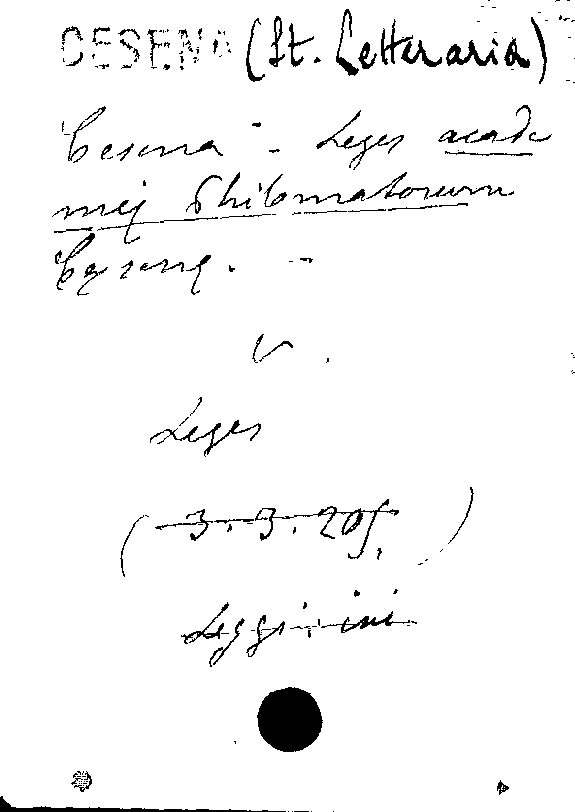 CESENA (St. Letteraria)
Cesena - Leges acade
mię Philomatorum
Cęsenę. -
V.
Leges
(3.3.20f.)
Leggi ivi